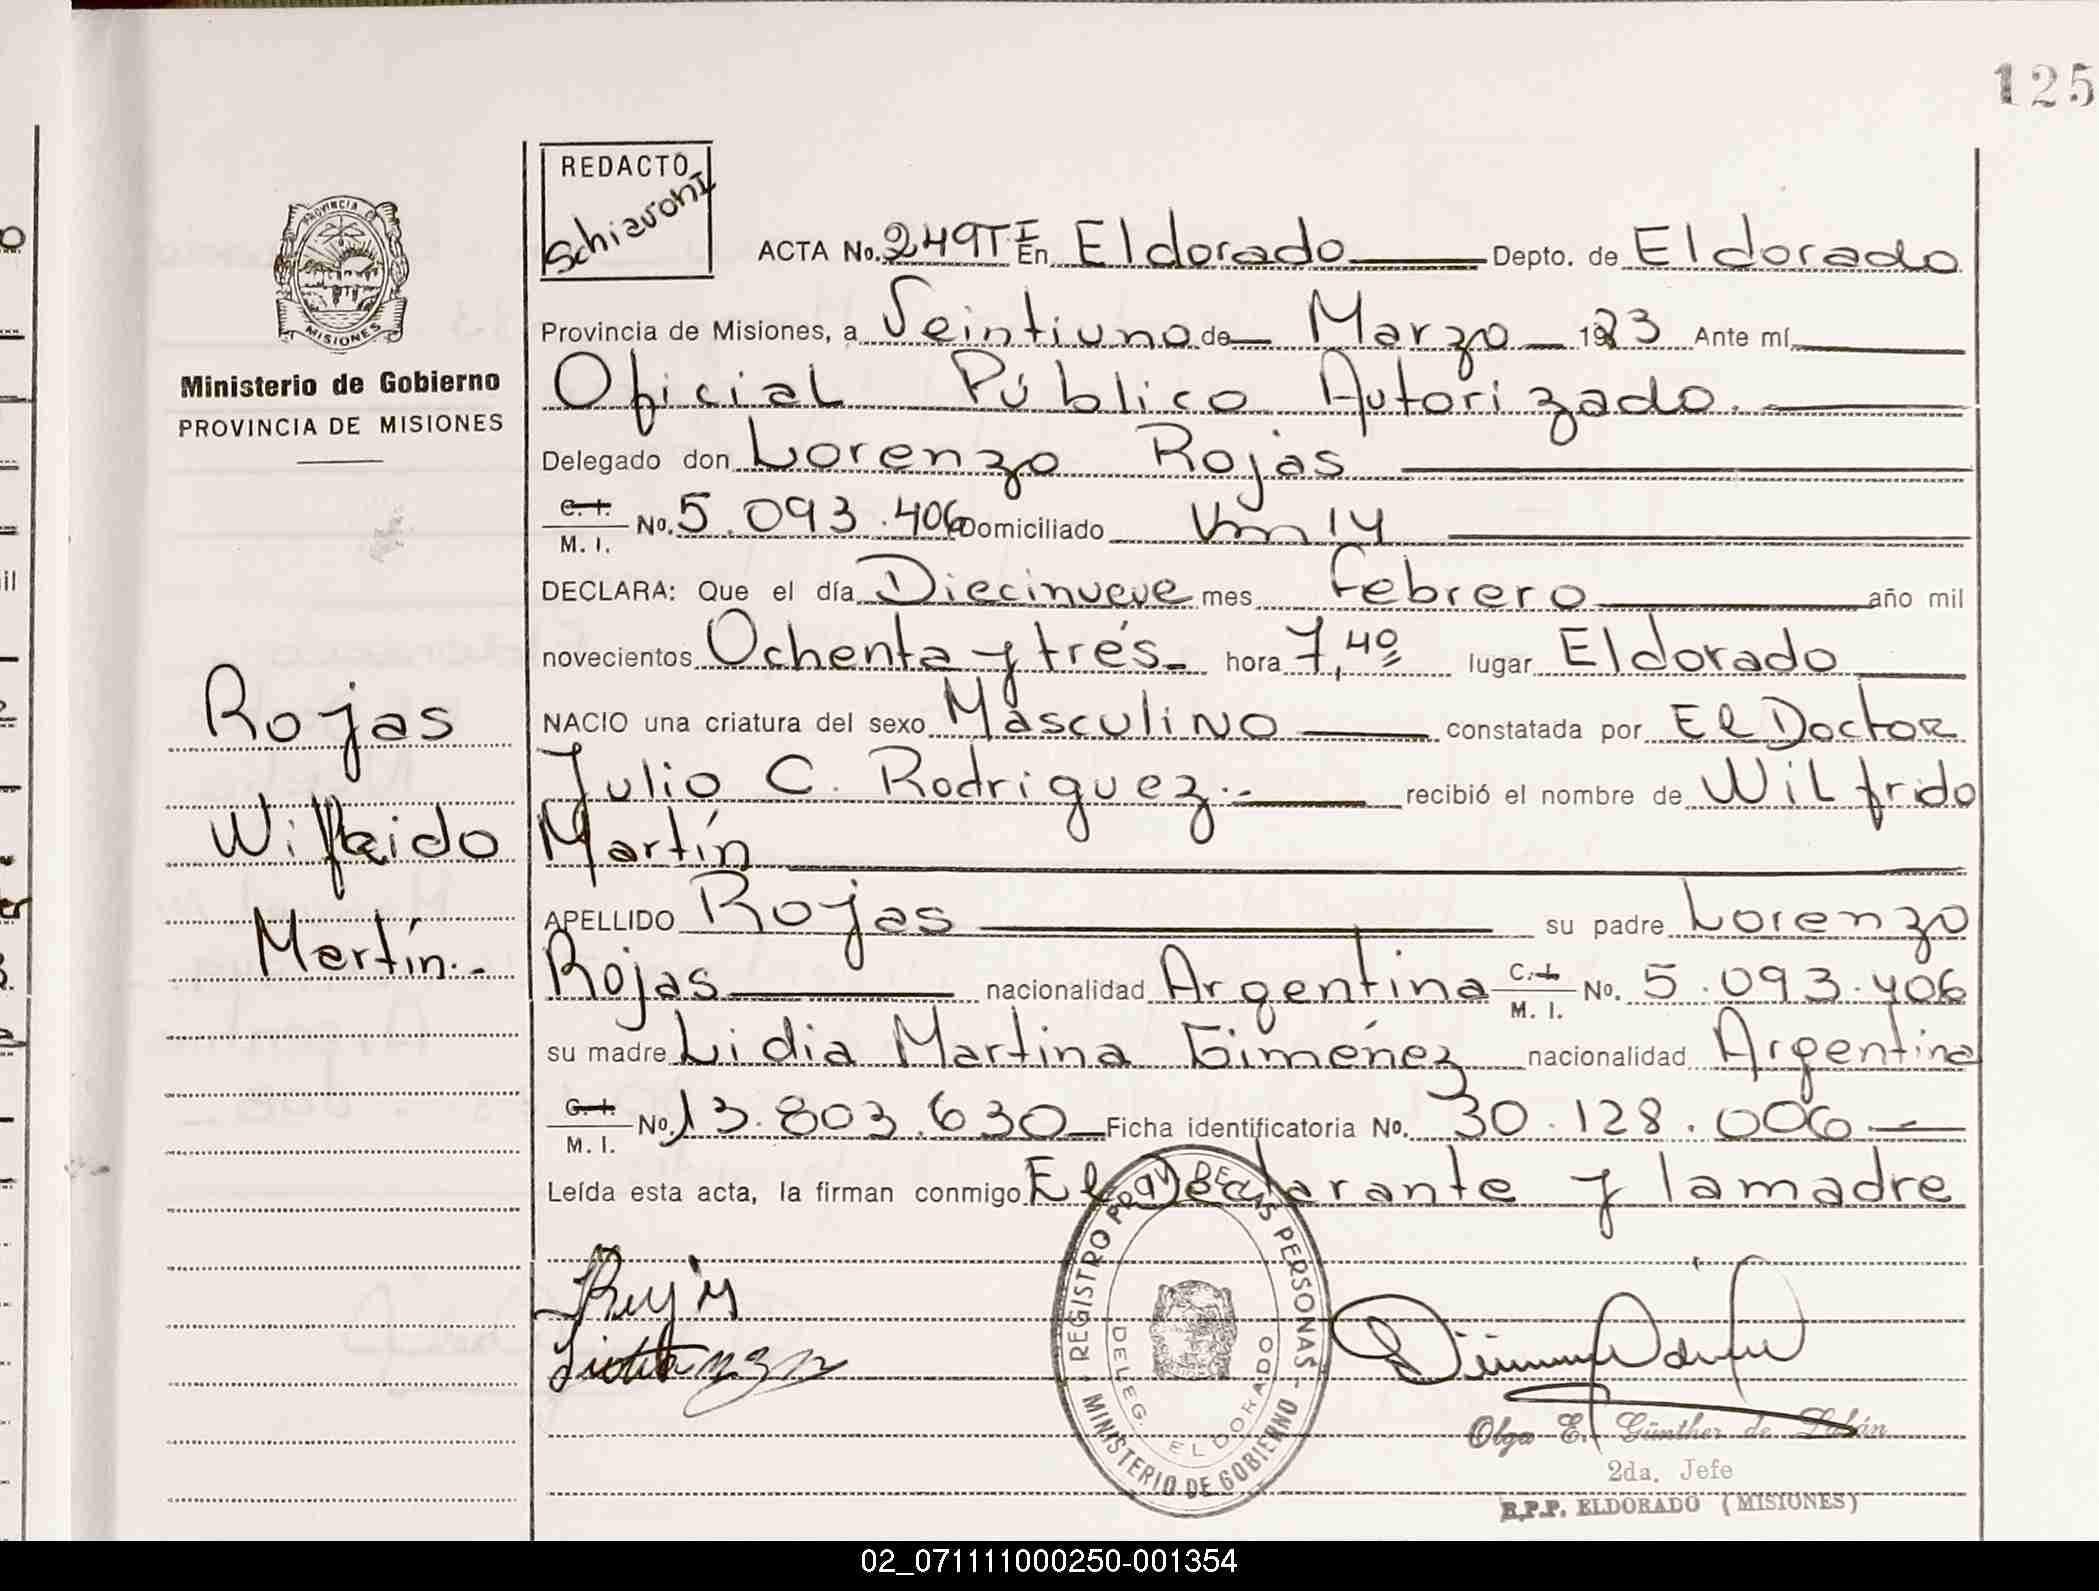 125
REDACTO
Schiavoni
PROVINCIA DE
MISIONES
Ministerio de Gobierno
PROVINCIA DE MISIONES
Rojas
Wilfrido
Martín.-
ACTA No. 249 TºE En Eldorado Depto. de Eldorado
Provincia de Misiones, a Veintiuno de Marzo 1983 Ante mí
Oficial Público Autorizado.-
Delegado don Lorenzo Rojas
C. I. / M. I. No. 5.093.406 Domiciliado Km 14
DECLARA: Que el día Diecinueve mes Febrero año mil
novecientos Ochenta y trés.- hora 7,40 lugar Eldorado
NACIO una criatura del sexo Masculino constatada por El Doctor
Julio C. Rodriguez.- recibió el nombre de Wilfrido
Martín
APELLIDO Rojas su padre Lorenzo
Rojas nacionalidad Argentina C. I. / M. I. No. 5.093.406
su madre Lidia Martina Giménez nacionalidad Argentina
C. I. / M. I. No. 13.803.630 Ficha identificatoria No. 30.128.006
Leída esta acta, la firman conmigo El Declarante y la madre
REGISTRO PROV. DE LAS PERSONAS - MINISTERIO DE GOBIERNO -
DELEG. ELDORADO
Olga E. Günther de
2da. Jefe
R.P.P. ELDORADO (MISIONES)
02_071111000250-001354